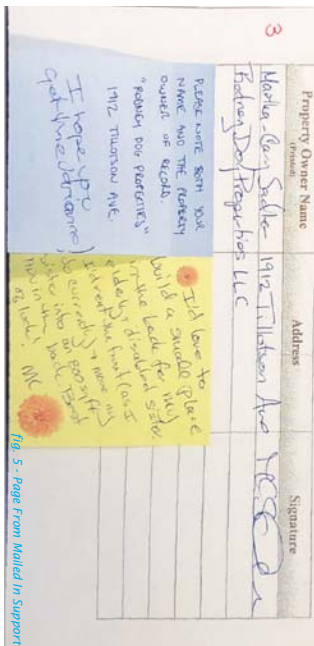 Property Owner Name Address Signature
(Printed)
3
1912 Tillotson Ave
Rodney Dog Properties LLC
PLEASE NOTE BOTH YOUR
NAME AND THE PROPERTY
OWNER OF RECORD.
"RODNEY DOG PROPERTIES"
1912 TILLOTSON AVE.
I hope you
get the
I'd love to
build a small place
in the back for my
elderly, disabled sister.
I'd rent the front (as I
do currently) & move my
sister into an 800 sq ft
in the back. Best
of luck! MC
fig. 5 - Page From Mailed In Support